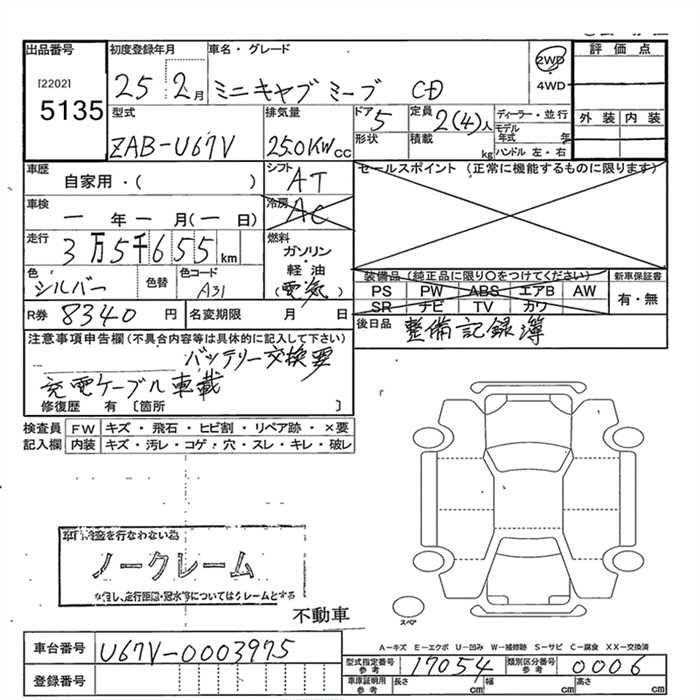 出品番号 初度登録年月 車名・グレード 2WD 評価点
[2202] 25 2月 ミニキャブミーブ CD 4WD
5135
型式 排気量 ドア 定員 ディーラー・並行 外装 内装
ZAB-U67V 25.0KW CC 5 2(4)人 モデル年式 年
形状 積載 kg ハンドル 左・右
車歴 シフト セールスポイント (正常に機能するものに限ります)
自家用・( ) AT
車検 冷房
一年一月(一日) AC
走行 燃料
3万5千655km ガソリン
・
色 色替 色コード 軽油 装備品 (純正品に限り○をつけてください) 新車保証書
シルバー A31 (電気) PS PW ABS エアB AW 有・無
SR ナビ TV カワ
R券 8340円 名変期限 月 日 後日品 整備記録簿
注意事項申告欄(不具合内容等は具体的に記入して下さい)
バッテリー交換要
充電ケーブル車載
修復歴 有 〔箇所 〕
検査員 FW キズ・飛石・ヒビ割・リペア跡・×要
記入欄 内装 キズ・汚レ・コゲ・穴・スレ・キレ・破レ
を行なわない為
ノークレーム
但し、走行距離・冠水等についてはクレームとする
不動車
スペア
A-キズ E-エクボ U-凹み W-補修跡 S-サビ C-腐食 XX-交換済
車台番号 U67V-0003975 型式指定番号 参考 17054 類別区分番号 参考 0006
登録番号 車庫証明用 参考 長さ cm 幅 cm 高さ cm